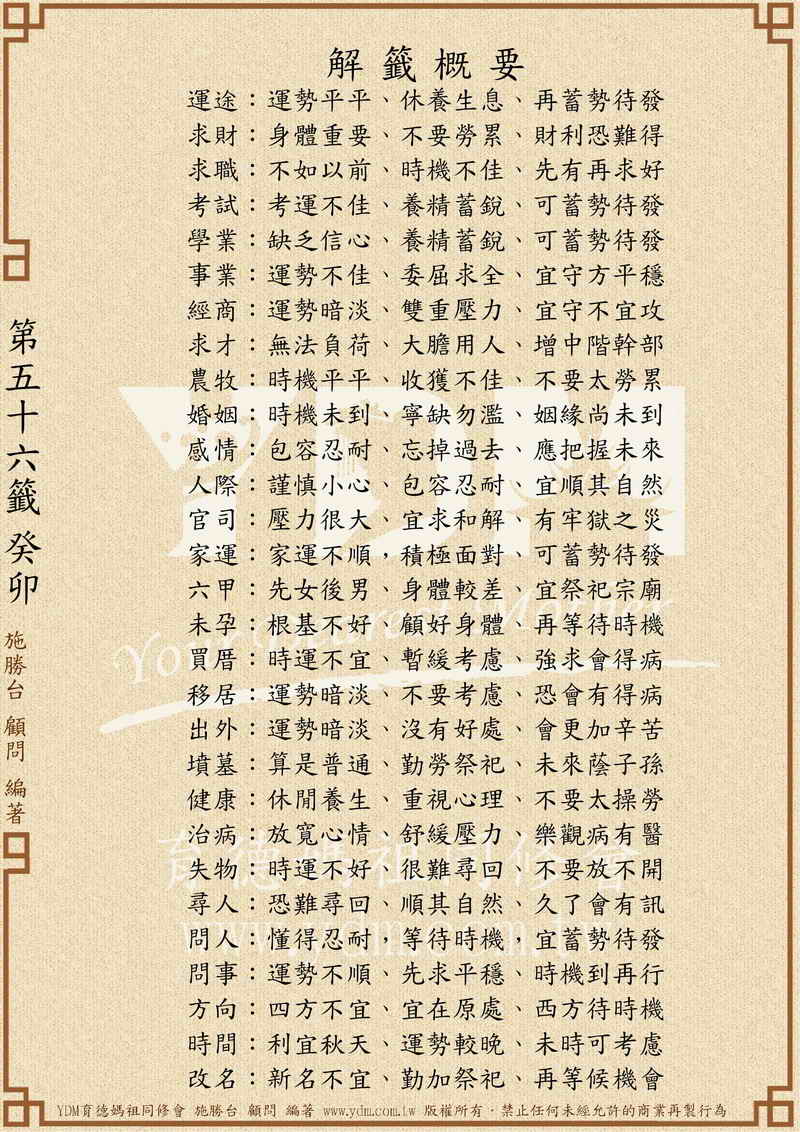 解籤概要
運途：運勢平平、休養生息、再蓄勢待發
求財：身體重要、不要勞累、財利恐難得
求職：不如以前、時機不佳、先有再求好
考試：考運不佳、養精蓄銳、可蓄勢待發
學業：缺乏信心、養精蓄銳、可蓄勢待發
事業：運勢不佳、委屈求全、宜守方平穩
經商：運勢暗淡、雙重壓力、宜守不宜攻
求才：無法負荷、大膽用人、增中階幹部
農牧：時機平平、收獲不佳、不要太勞累
婚姻：時機未到、寧缺勿濫、姻緣尚未到
感情：包容忍耐、忘掉過去、應把握未來
人際：謹慎小心、包容忍耐、宜順其自然
官司：壓力很大、宜求和解、有牢獄之災
家運：家運不順，積極面對、可蓄勢待發
六甲：先女後男、身體較差、宜祭祀宗廟
未孕：根基不好、顧好身體、再等待時機
買厝：時運不宜、暫緩考慮、強求會得病
移居：運勢暗淡、不要考慮、恐會有得病
出外：運勢暗淡、沒有好處、會更加辛苦
墳墓：算是普通、勤勞祭祀、未來蔭子孫
健康：休閒養生、重視心理、不要太操勞
治病：放寬心情、舒緩壓力、樂觀病有醫
失物：時運不好、很難尋回、不要放不開
尋人：恐難尋回、順其自然、久了會有訊
問人：懂得忍耐，等待時機，宜蓄勢待發
問事：運勢不順、先求平穩、時機到再行
方向：四方不宜、宜在原處、西方待時機
時間：利宜秋天、運勢較晚、未時可考慮
改名：新名不宜、勤加祭祀、再等候機會
第五十六籤 癸卯
施勝台 顧問 編著
YDM
育德媽祖同修會
www.ydm.com.tw
YDM育德媽祖同修會 施勝台 顧問 編著 www.ydm.com.tw 版權所有．禁止任何未經允許的商業再製行為